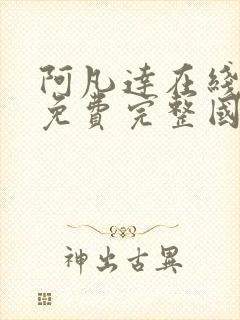 阿凡達在綫
免費完整國
神出古異